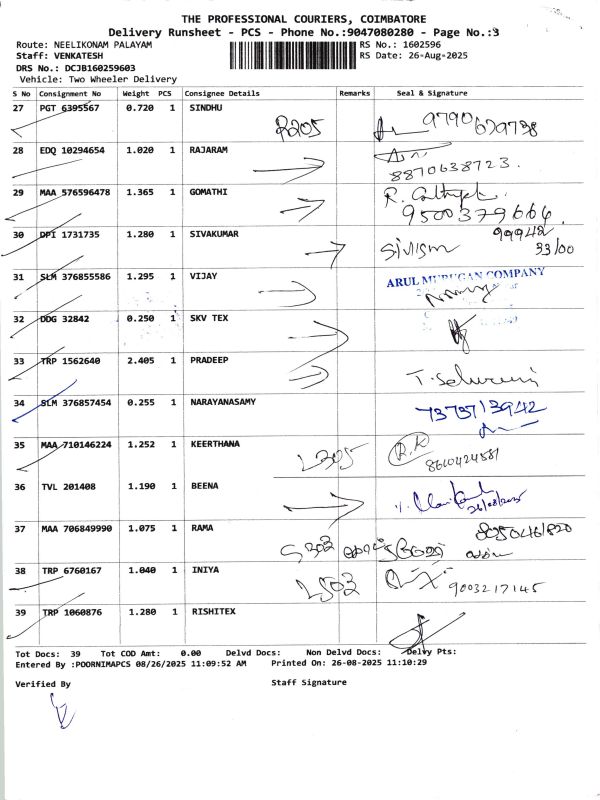 THE PROFESSIONAL COURIERS, COIMBATORE
Delivery Runsheet - PCS - Phone No.:9047080280 - Page No.:3
Route: NEELIKONAM PALAYAM RS No.: 1602596
Staff: VENKATESH RS Date: 26-Aug-2025
DRS No.: DCJB160259603
Vehicle: Two Wheeler Delivery
S No Consignment No Weight PCS Consignee Details Remarks Seal & Signature
27 PGT 6395567 0.720 1 SINDHU R205
28 EDQ 10294654 1.020 1 RAJARAM
8870638723.
29 MAA 576596478 1.365 1 GOMATHI
9500379664
30 DPI 1731735 1.280 1 SIVAKUMAR 99942
33100
31 SLM 376855586 1.295 1 VIJAY ARUL MURUGAN COMPANY
32 DDG 32842 0.250 1 SKV TEX
33 TRP 1562640 2.405 1 PRADEEP
34 SLM 376857454 0.255 1 NARAYANASAMY 7373713942
35 MAA 710146224 1.252 1 KEERTHANA L305 R.K
8610424581
36 TVL 201408 1.190 1 BEENA
26/08/2025
37 MAA 706849990 1.075 1 RAMA S303
38 TRP 6760167 1.040 1 INIYA L503 9003217145
39 TRP 1060876 1.280 1 RISHITEX
Tot Docs: 39 Tot COD Amt: 0.00 Delvd Docs: Non Delvd Docs: Delvy Pts:
Entered By :POORNIMAPCS 08/26/2025 11:09:52 AM Printed On: 26-08-2025 11:10:29
Verified By Staff Signature